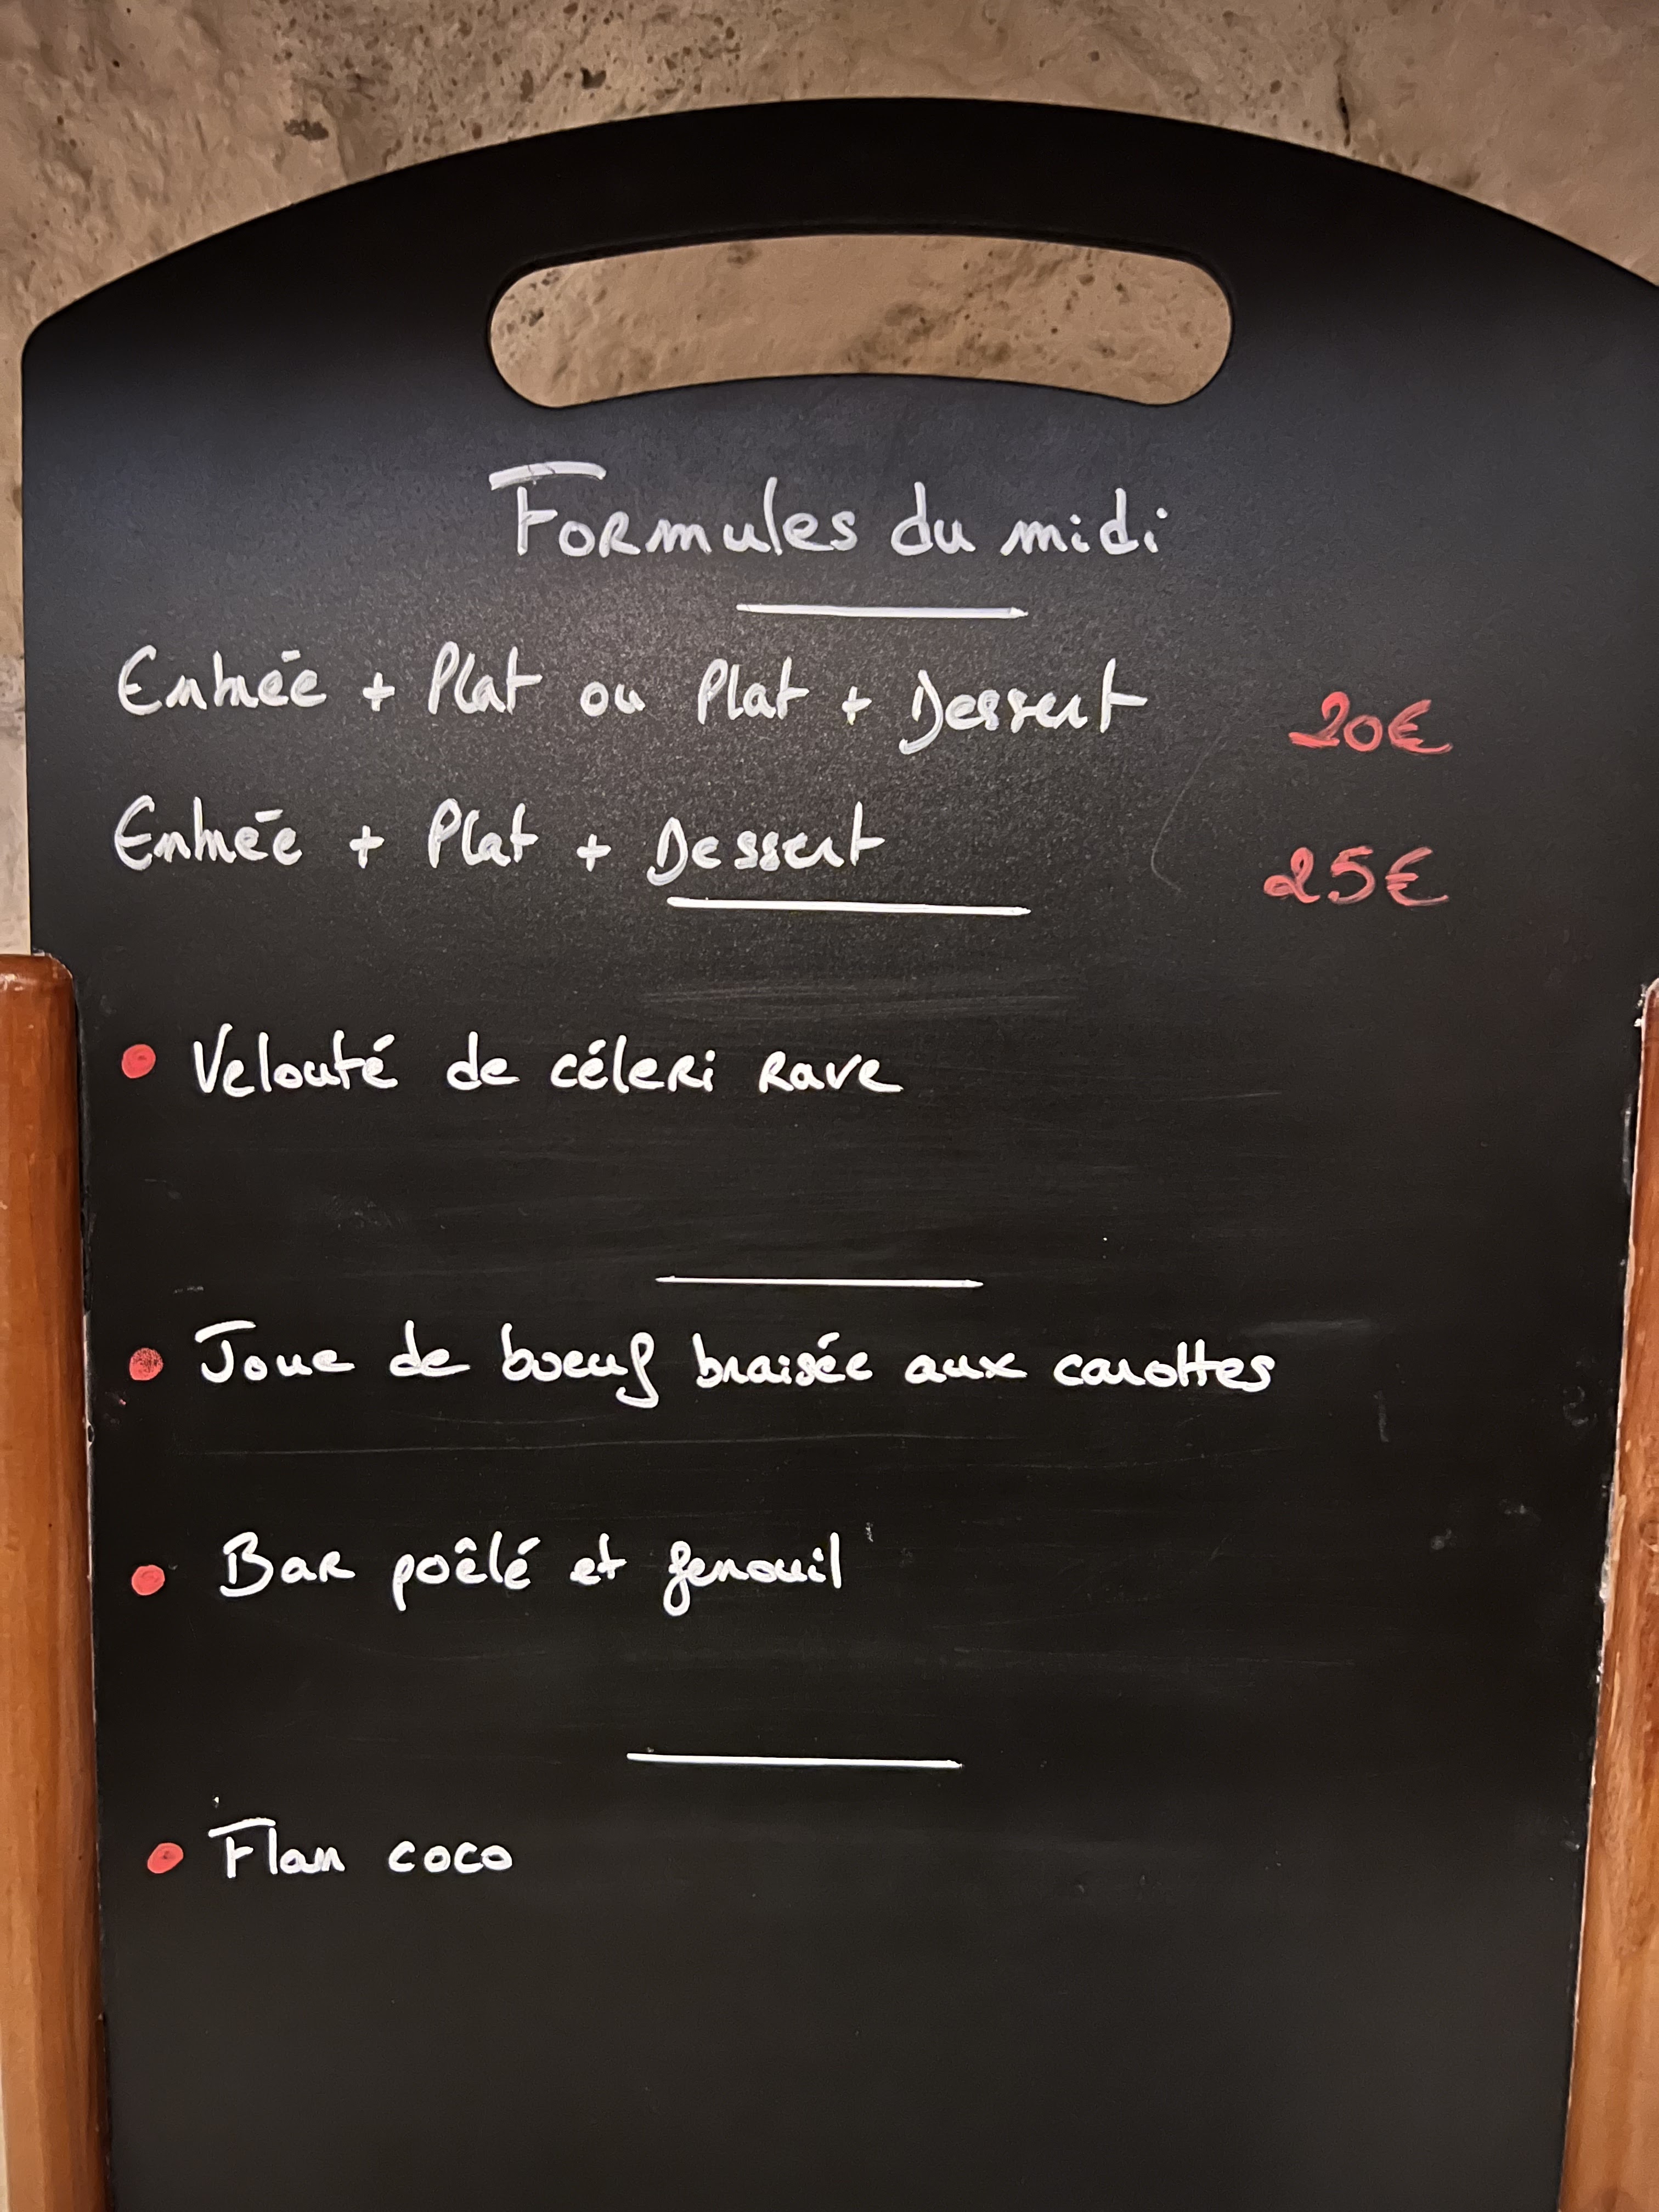 Formules du midi
Entrée + Plat ou Plat + Dessert 20€
Entrée + Plat + Dessert 25€
Velouté de céleri rave
Joue de boeuf braisée aux carottes
Bar poêlé et fenouil
Flan coco